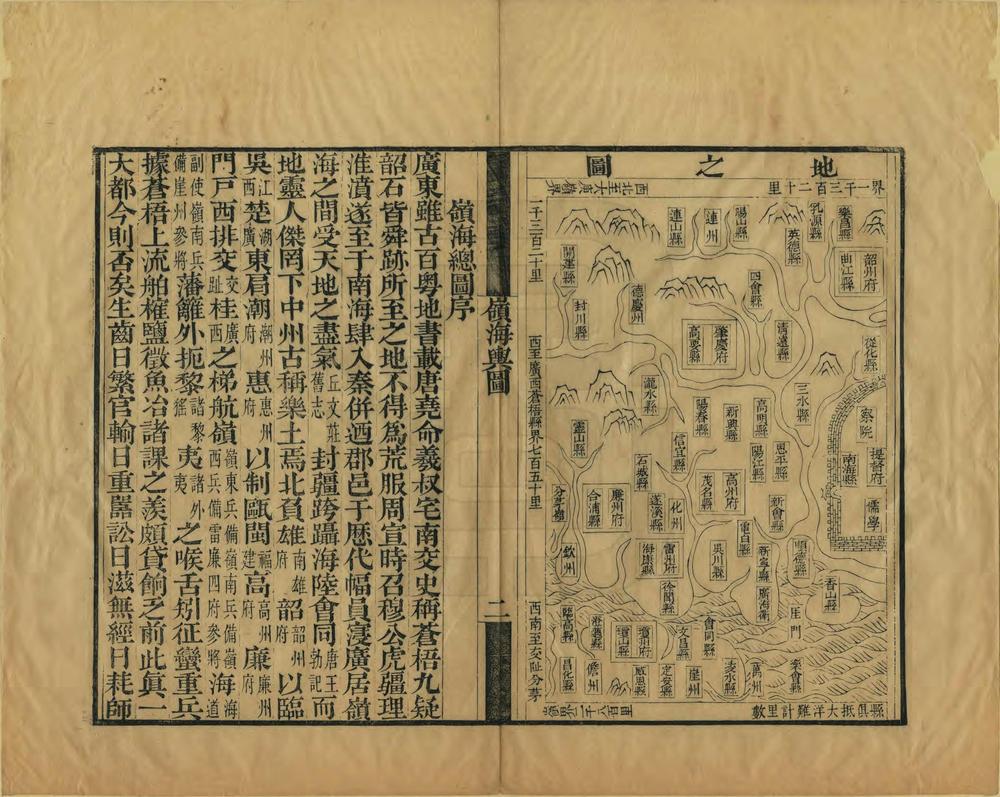 地之圖
界一千三百二十里
西北至大庾嶺界
一千三百二十里
西至廣西蒼梧縣界七百五十里
西南至交阯分茅
縣俱抵大洋難計里數
樂昌縣
乳源縣
英德縣
陽山縣
連州
連山縣
韶州府
曲江縣
開建縣
封川縣
德慶州
四會縣
清遠縣
肇慶府
高要縣
從化縣
三水縣
瀧水縣
陽春縣
新興縣
高明縣
恩平縣
陽江縣
察院
提督府
南海縣
儒學
靈山縣
信宜縣
石城縣
茂名縣
高州府
化州
遂溪縣
廉州府
合浦縣
分茅嶺
欽州
新會縣
電白縣
吳川縣
雷州府
海康縣
徐聞縣
新寧縣
廣海衛
順德縣
香山縣
厓門
臨高縣
澄邁縣
瓊州府
瓊山縣
文昌縣
會同縣
昌化縣
儋州
感恩縣
定安縣
崖州
陵水縣
萬州
樂會縣
嶺海輿圖
二
嶺海總圖序
廣東雖古百粵地書載唐堯命羲叔宅南交史稱蒼梧九疑
韶石皆舜跡所至之地不得為荒服周宣時召穆公虎疆理
淮濆遂至于南海肆入秦併迺郡邑于歷代幅員寖廣居嶺
海之間受天地之盡氣丘文莊舊志封疆跨躡海陸會同唐王勃記而
地靈人傑罔下中州古稱樂土焉北負雄南雄府韶韶州府以臨
吳江西楚湖廣東扃潮潮州府惠惠州府以制甌閩福建高高州府廉廉州府
門戶西排交交趾桂廣西之梯航嶺嶺東兵備嶺南兵備嶺西兵備雷廉四府參將海海道
副使嶺南兵備崖州參將藩籬外扼黎諸黎徭夷諸外夷之喉舌矧征蠻重兵
據蒼梧上流舶榷鹽徵魚冶諸課之羨頗貸餉乏前此眞一
大都今則否矣生齒日繁官輸日重嚚訟日滋無經日耗師